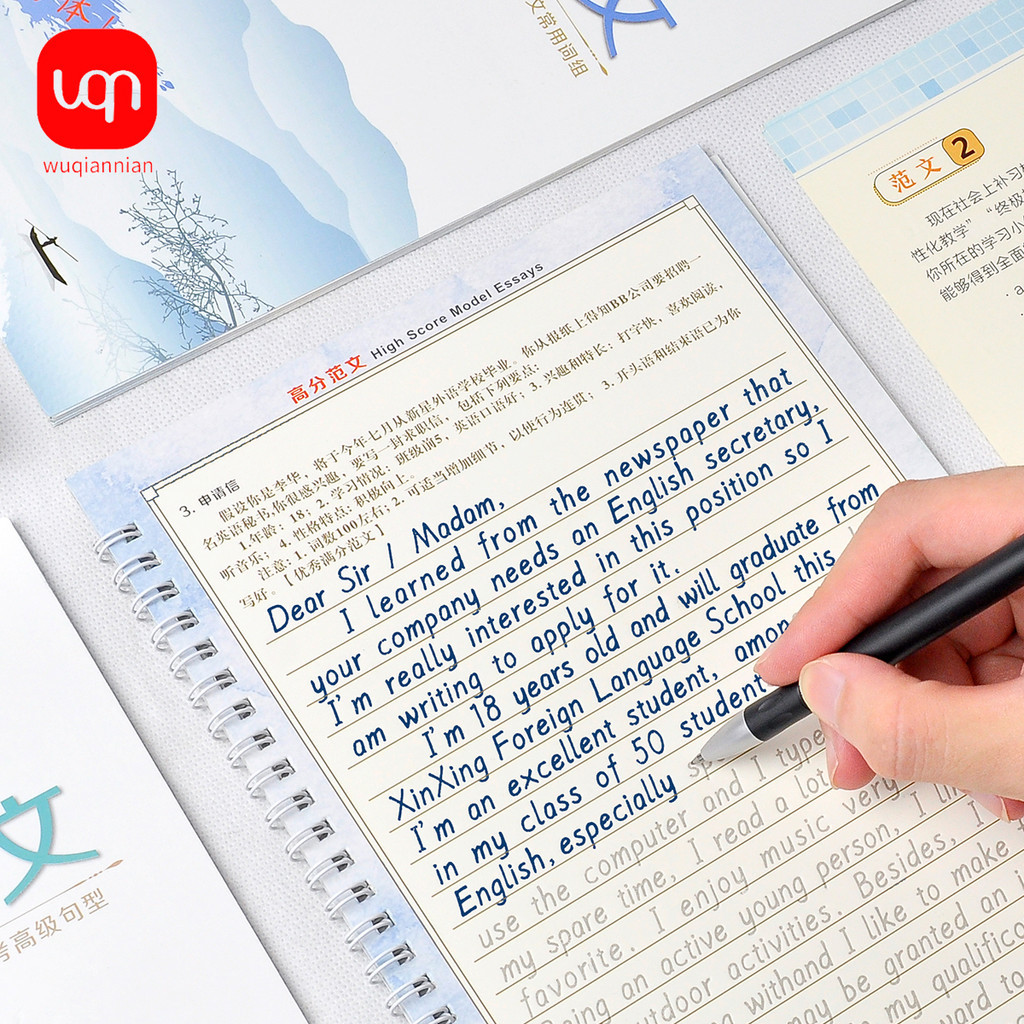 uqn
wuqiannian
文常用词组
文
范文 2
现在社会上补习
性化教学" "终极
你所在的学习小
能够得到全面
高分范文 High Score Model Essays
3. 申请信
假设你是李华，将于今年七月从新星外语学校毕业。你从报纸上得知BB公司要招聘一
名英语秘书,你很感兴趣，要写一封求职信，包括下列要点：
1.年龄：18；2.学习情况：班级前5，英语口语好；3.兴趣和特长：打字快、喜欢阅读，
听音乐；4.性格特点：积极向上。
注意：1.词数100左右；2.可适当增加细节，以使行为连贯；3.开头语和结束语已为你
写好。
【优秀满分范文】
Dear Sir / Madam,
I learned from the newspaper that
your company needs an English secretary,
I'm really interested in this position so I
am writing to apply for it.
I'm 18 years old and will graduate from
XinXing Foreign Language School this
I'm an excellent student, amon
in my class of 50 student
English, especially
use the computer and I type
my spare time, I read a lot
favorite. I enjoy music very
Being an active young person, I li
outdoor activities. Besides, I
withand I like to make
may be granted an i
my qualifico
文
考高级句型